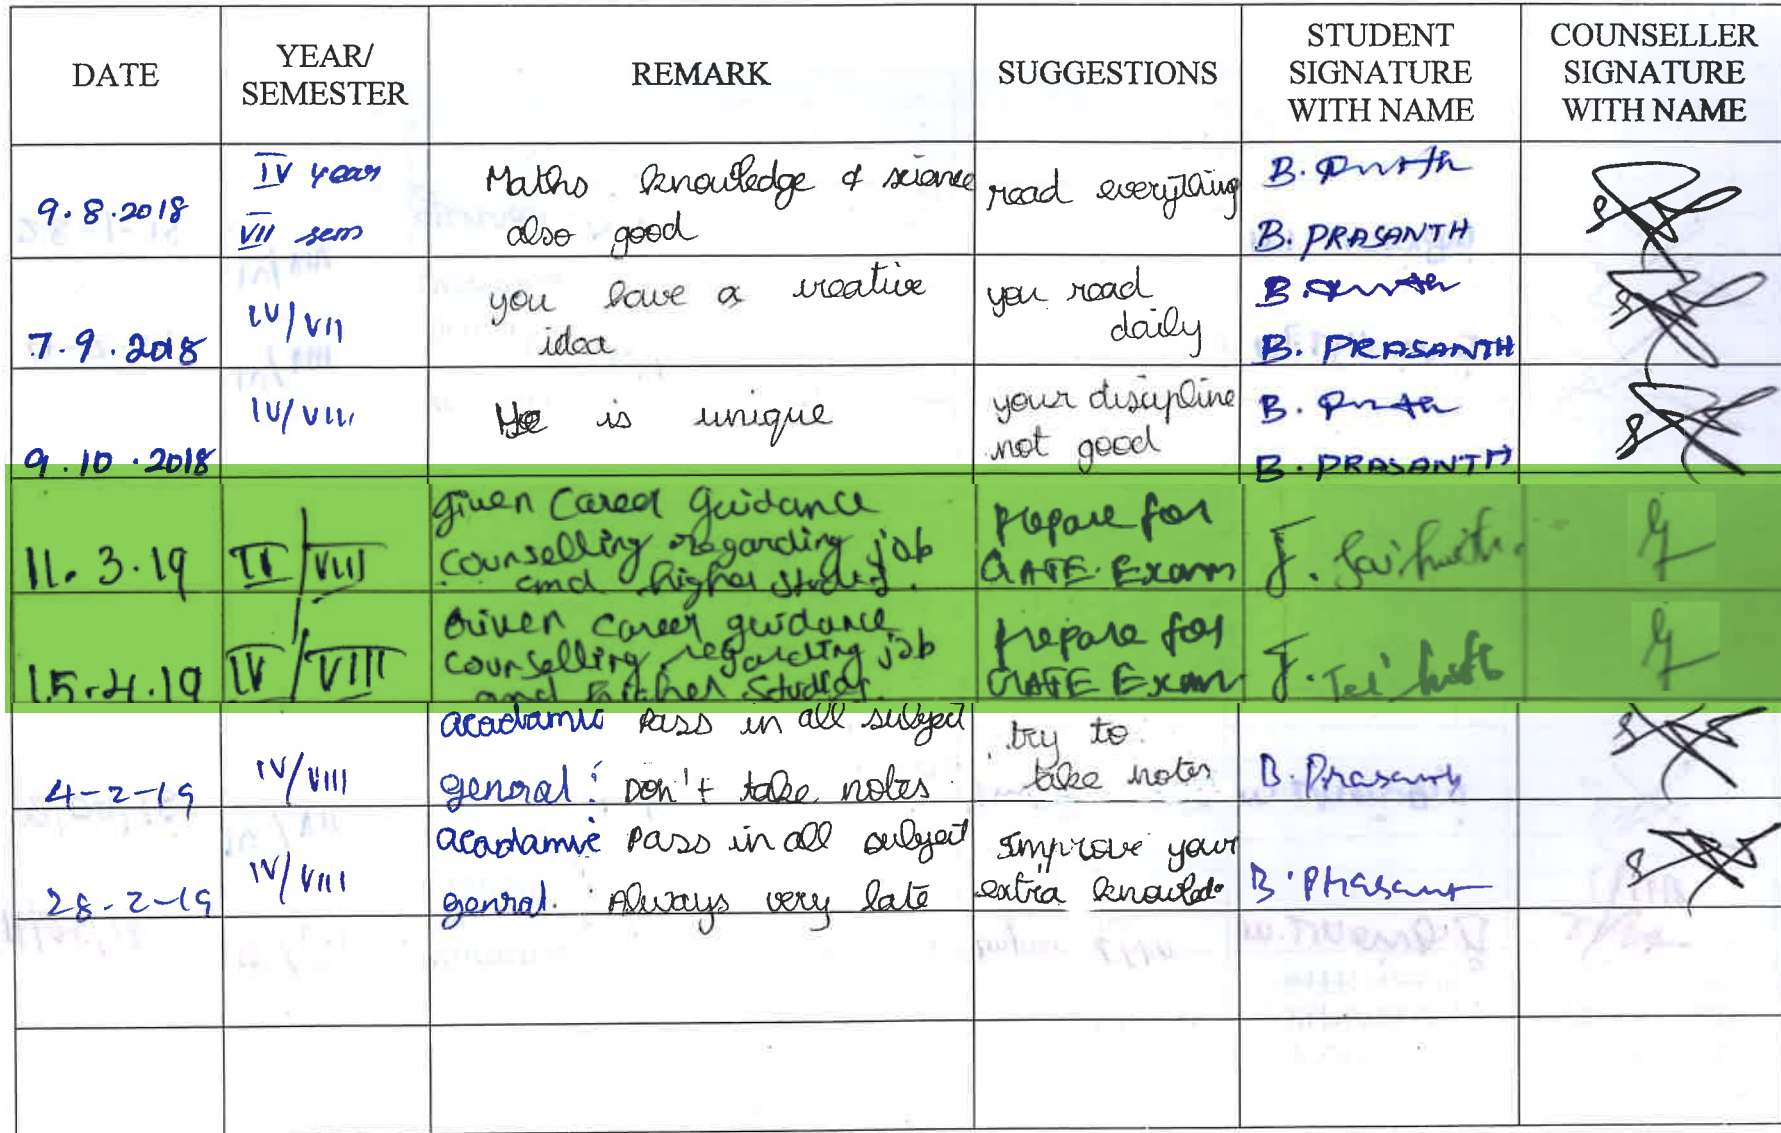 DATE
YEAR/
SEMESTER
REMARK
SUGGESTIONS
STUDENT
SIGNATURE
WITH NAME
COUNSELLER
SIGNATURE
WITH NAME
9.8.2018
IV year
VII sem
Maths knowledge & science
also good
read everything
B. PRASANTH
7.9.2018
IV/VII
you have a creative
idea
you read
daily
B. PRASANTH
9.10.2018
IV/VII
He is unique
your discipline
not good
B. PRASANTH
11.3.19
IV/VIII
Given Career Guidance
counselling regarding job
and higher studies.
Prepare for
GATE Exam
J.
15.4.19
IV/VIII
Given career guidance
counselling regarding job
and higher studies.
Prepare for
GATE Exam
J.
4-2-19
IV/VIII
acadamic Pass in all subject
general: Don't take notes
try to
take notes
B. Prasanth
28-2-19
IV/VIII
acadamic Pass in all subject
genral: Always very late
Improve your
extra
B. Prasant